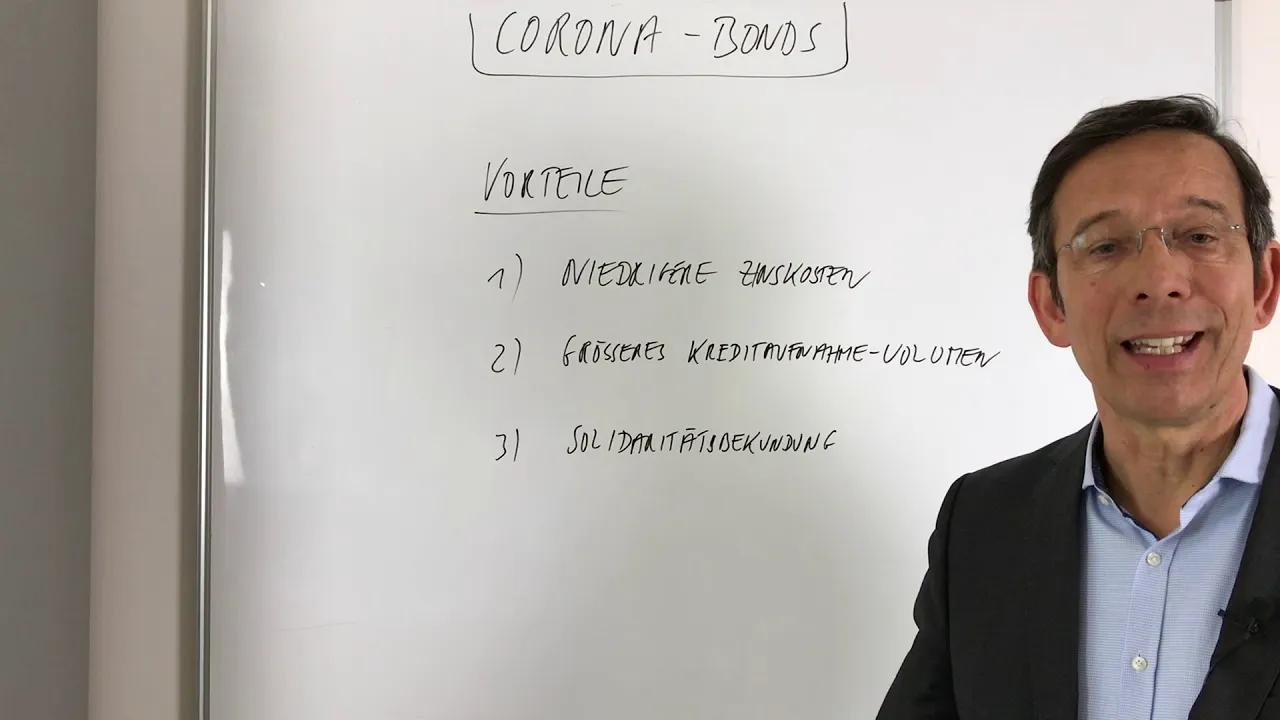 CORONA - BONDS
VORTEILE
1) NIEDRIGERE ZINSKOSTEN
2) GRÖSSERES KREDITAUFNAHME-VOLUMEN
3) SOLIDARITÄTSBEKUNDUNG